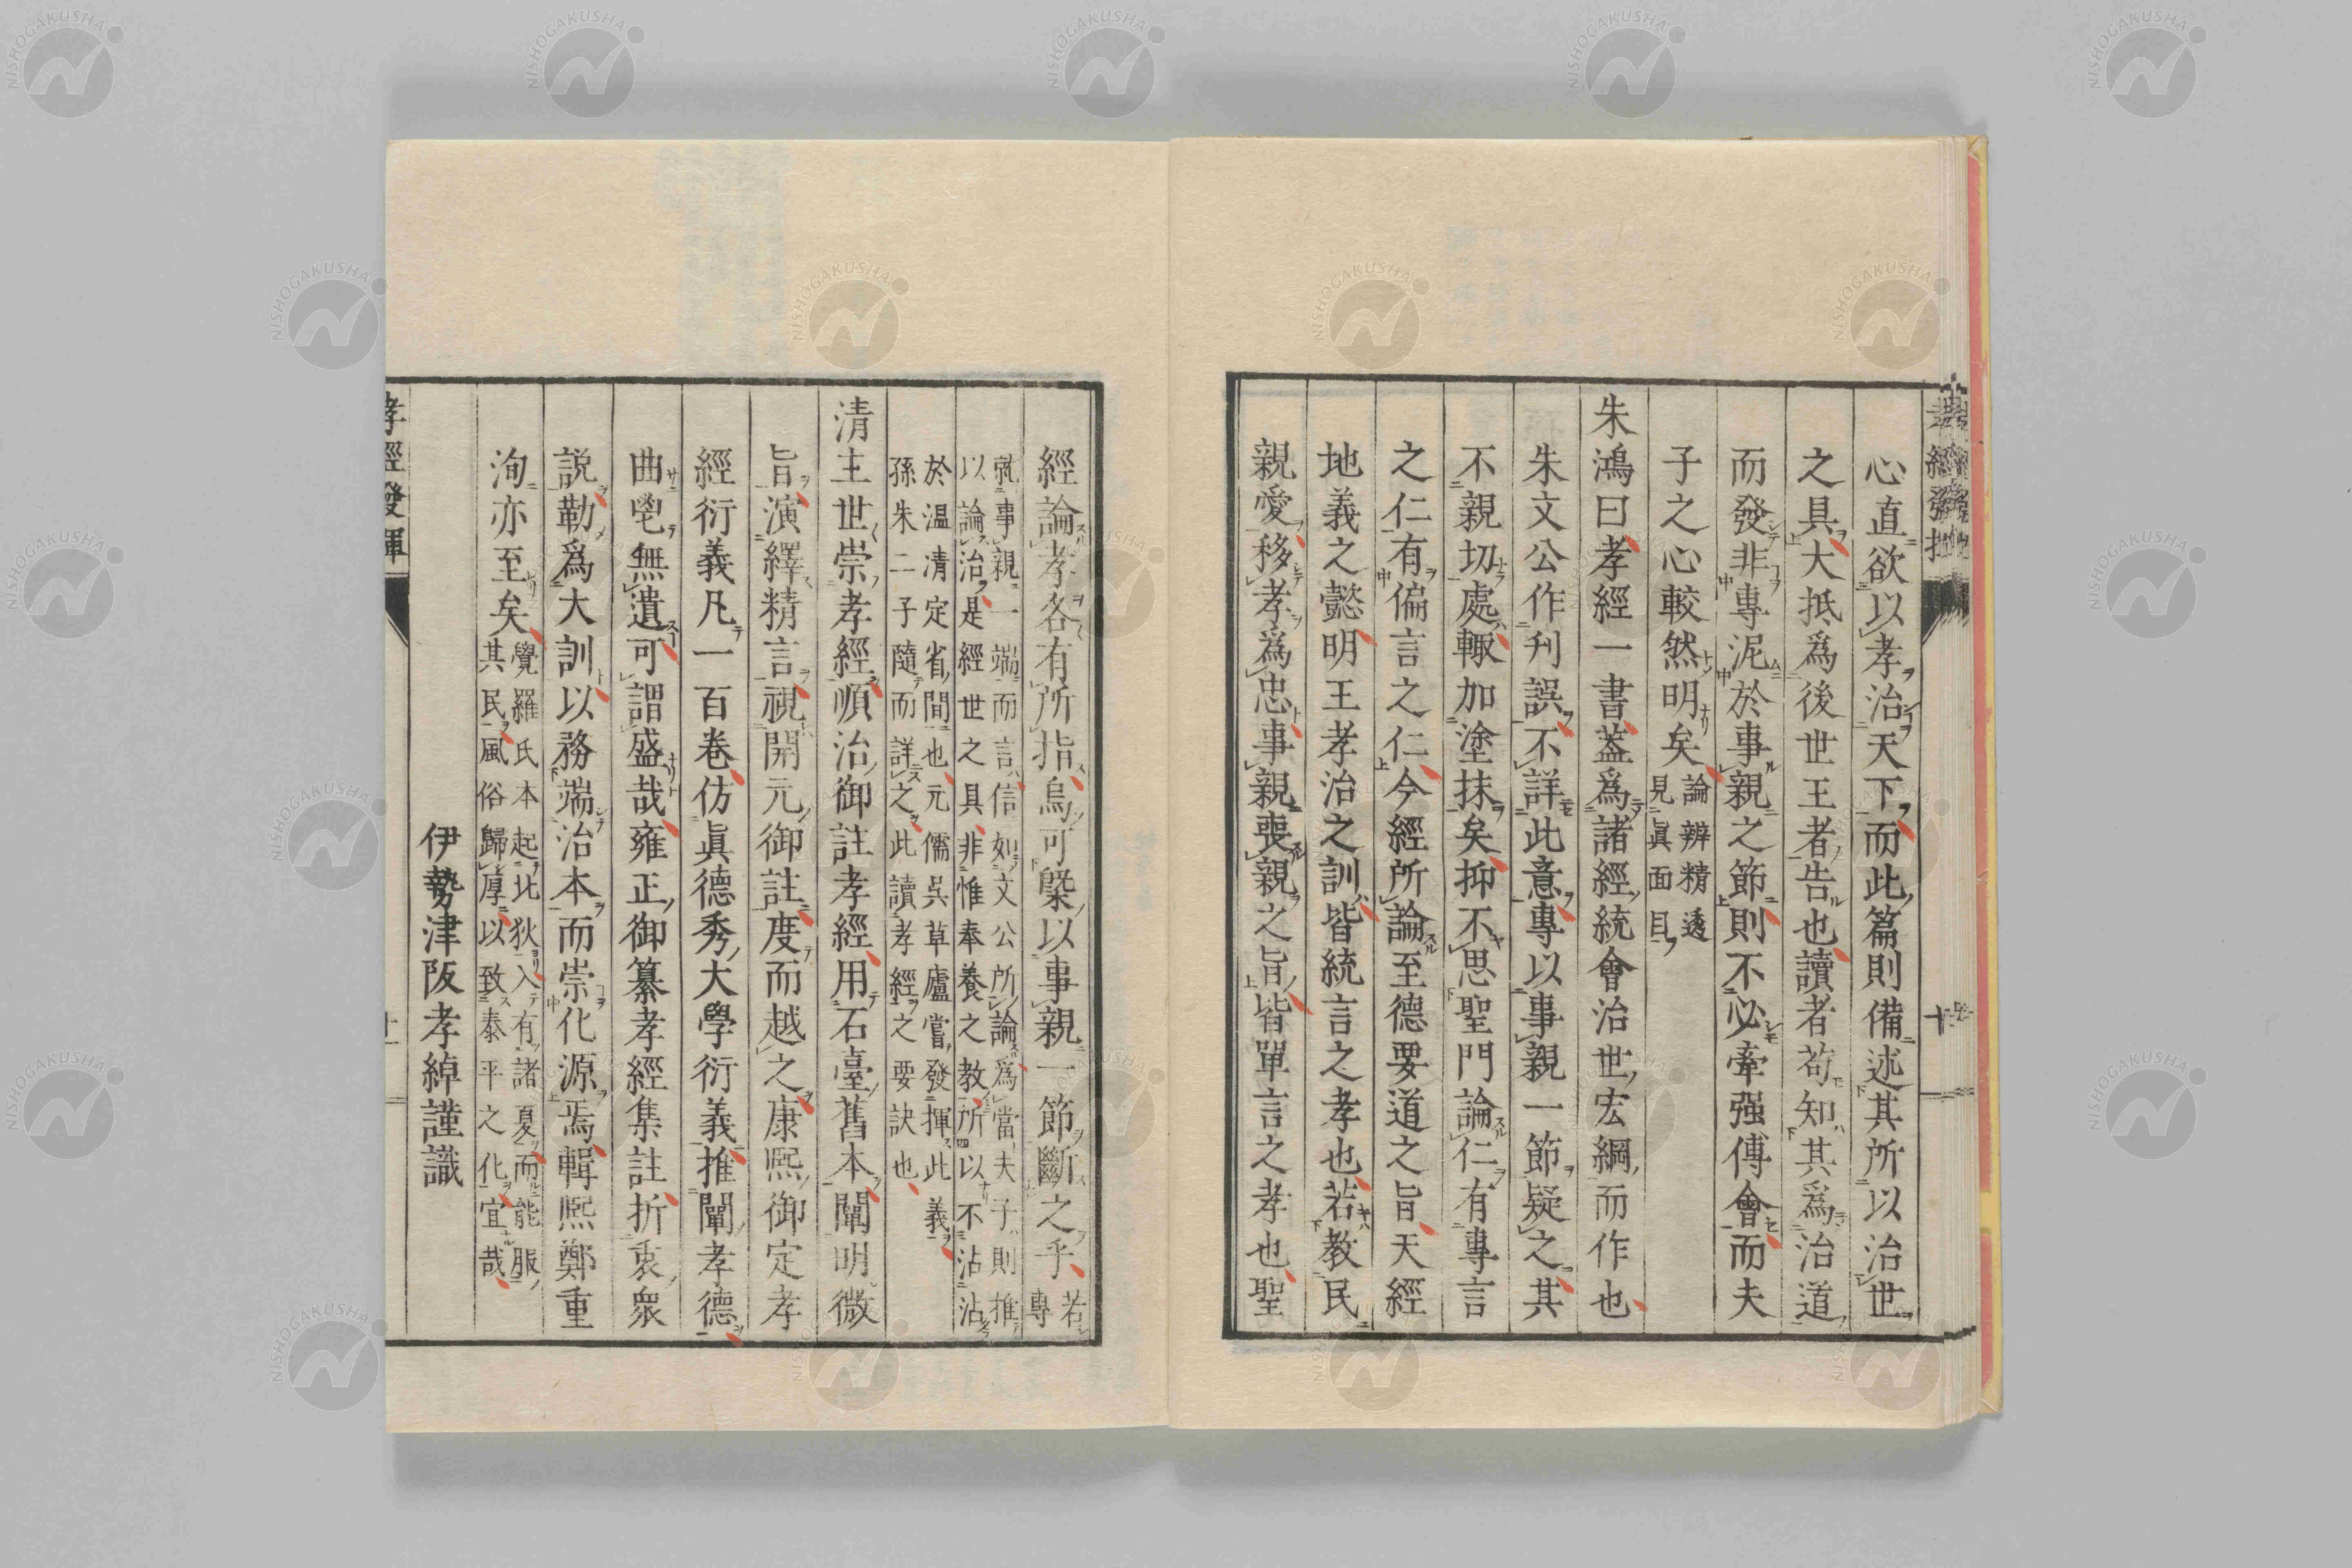 心直欲以孝治天下而此篇則備述其所以治世
之具大抵爲後世王者告也讀者苟知其爲治道
而發非專泥於事親之節則不必牽强傅會而夫
子之心較然明矣論辨精透
見眞面目
朱鴻曰孝經一書蓋爲諸經統會治世宏綱而作也
朱文公作刊誤不詳此意專以事親一節疑之其
不親切處輙加塗抹矣抑不思聖門論仁有專言
之仁有偏言之仁今經所論至德要道之旨天經
地義之懿明王孝治之訓皆統言之孝也若教民
親愛移孝爲忠事親喪親之旨皆單言之孝也聖
經論孝各有所指烏可槩以事親一節斷之乎若
專
就事親一端而言信如文公所論爲當夫子則推
以論治是經世之具非惟奉養之教所以不沾沾
於温凊定省間也元儒呉草廬嘗發揮此義
孫朱二子隨而詳之此讀孝經之要訣也
清主世祟孝經順治御註孝經用石臺舊本闡明微
旨演繹精言視開元御註度而越之康熙御定孝
經衍義凡一百卷仿眞德秀大學衍義推闡孝德
曲鬯無遺可謂盛哉雍正御纂孝經集註折衷衆
説勒爲大訓以務端治本而崇化源焉輯熙鄭重
洵亦至矣覺羅氏本起北狄入有諸夏而能服
其民風俗歸厚以致泰平之化宜哉
伊勢津阪孝綽謹識
孝經發揮
十一